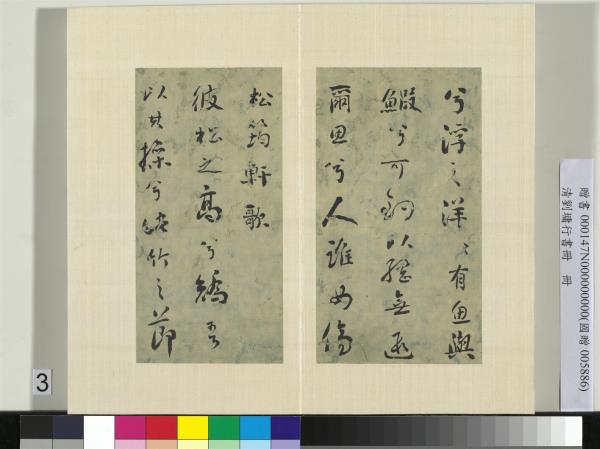 兮浮之洋〻有魚與
鰕兮可釣以緡無逐
爾思兮人誰如
松筠軒歌
彼松之高兮矯〻
以其操兮 竹之節
贈書 000147N000000000(國贈 005886)
清劉墉行書冊 冊
3